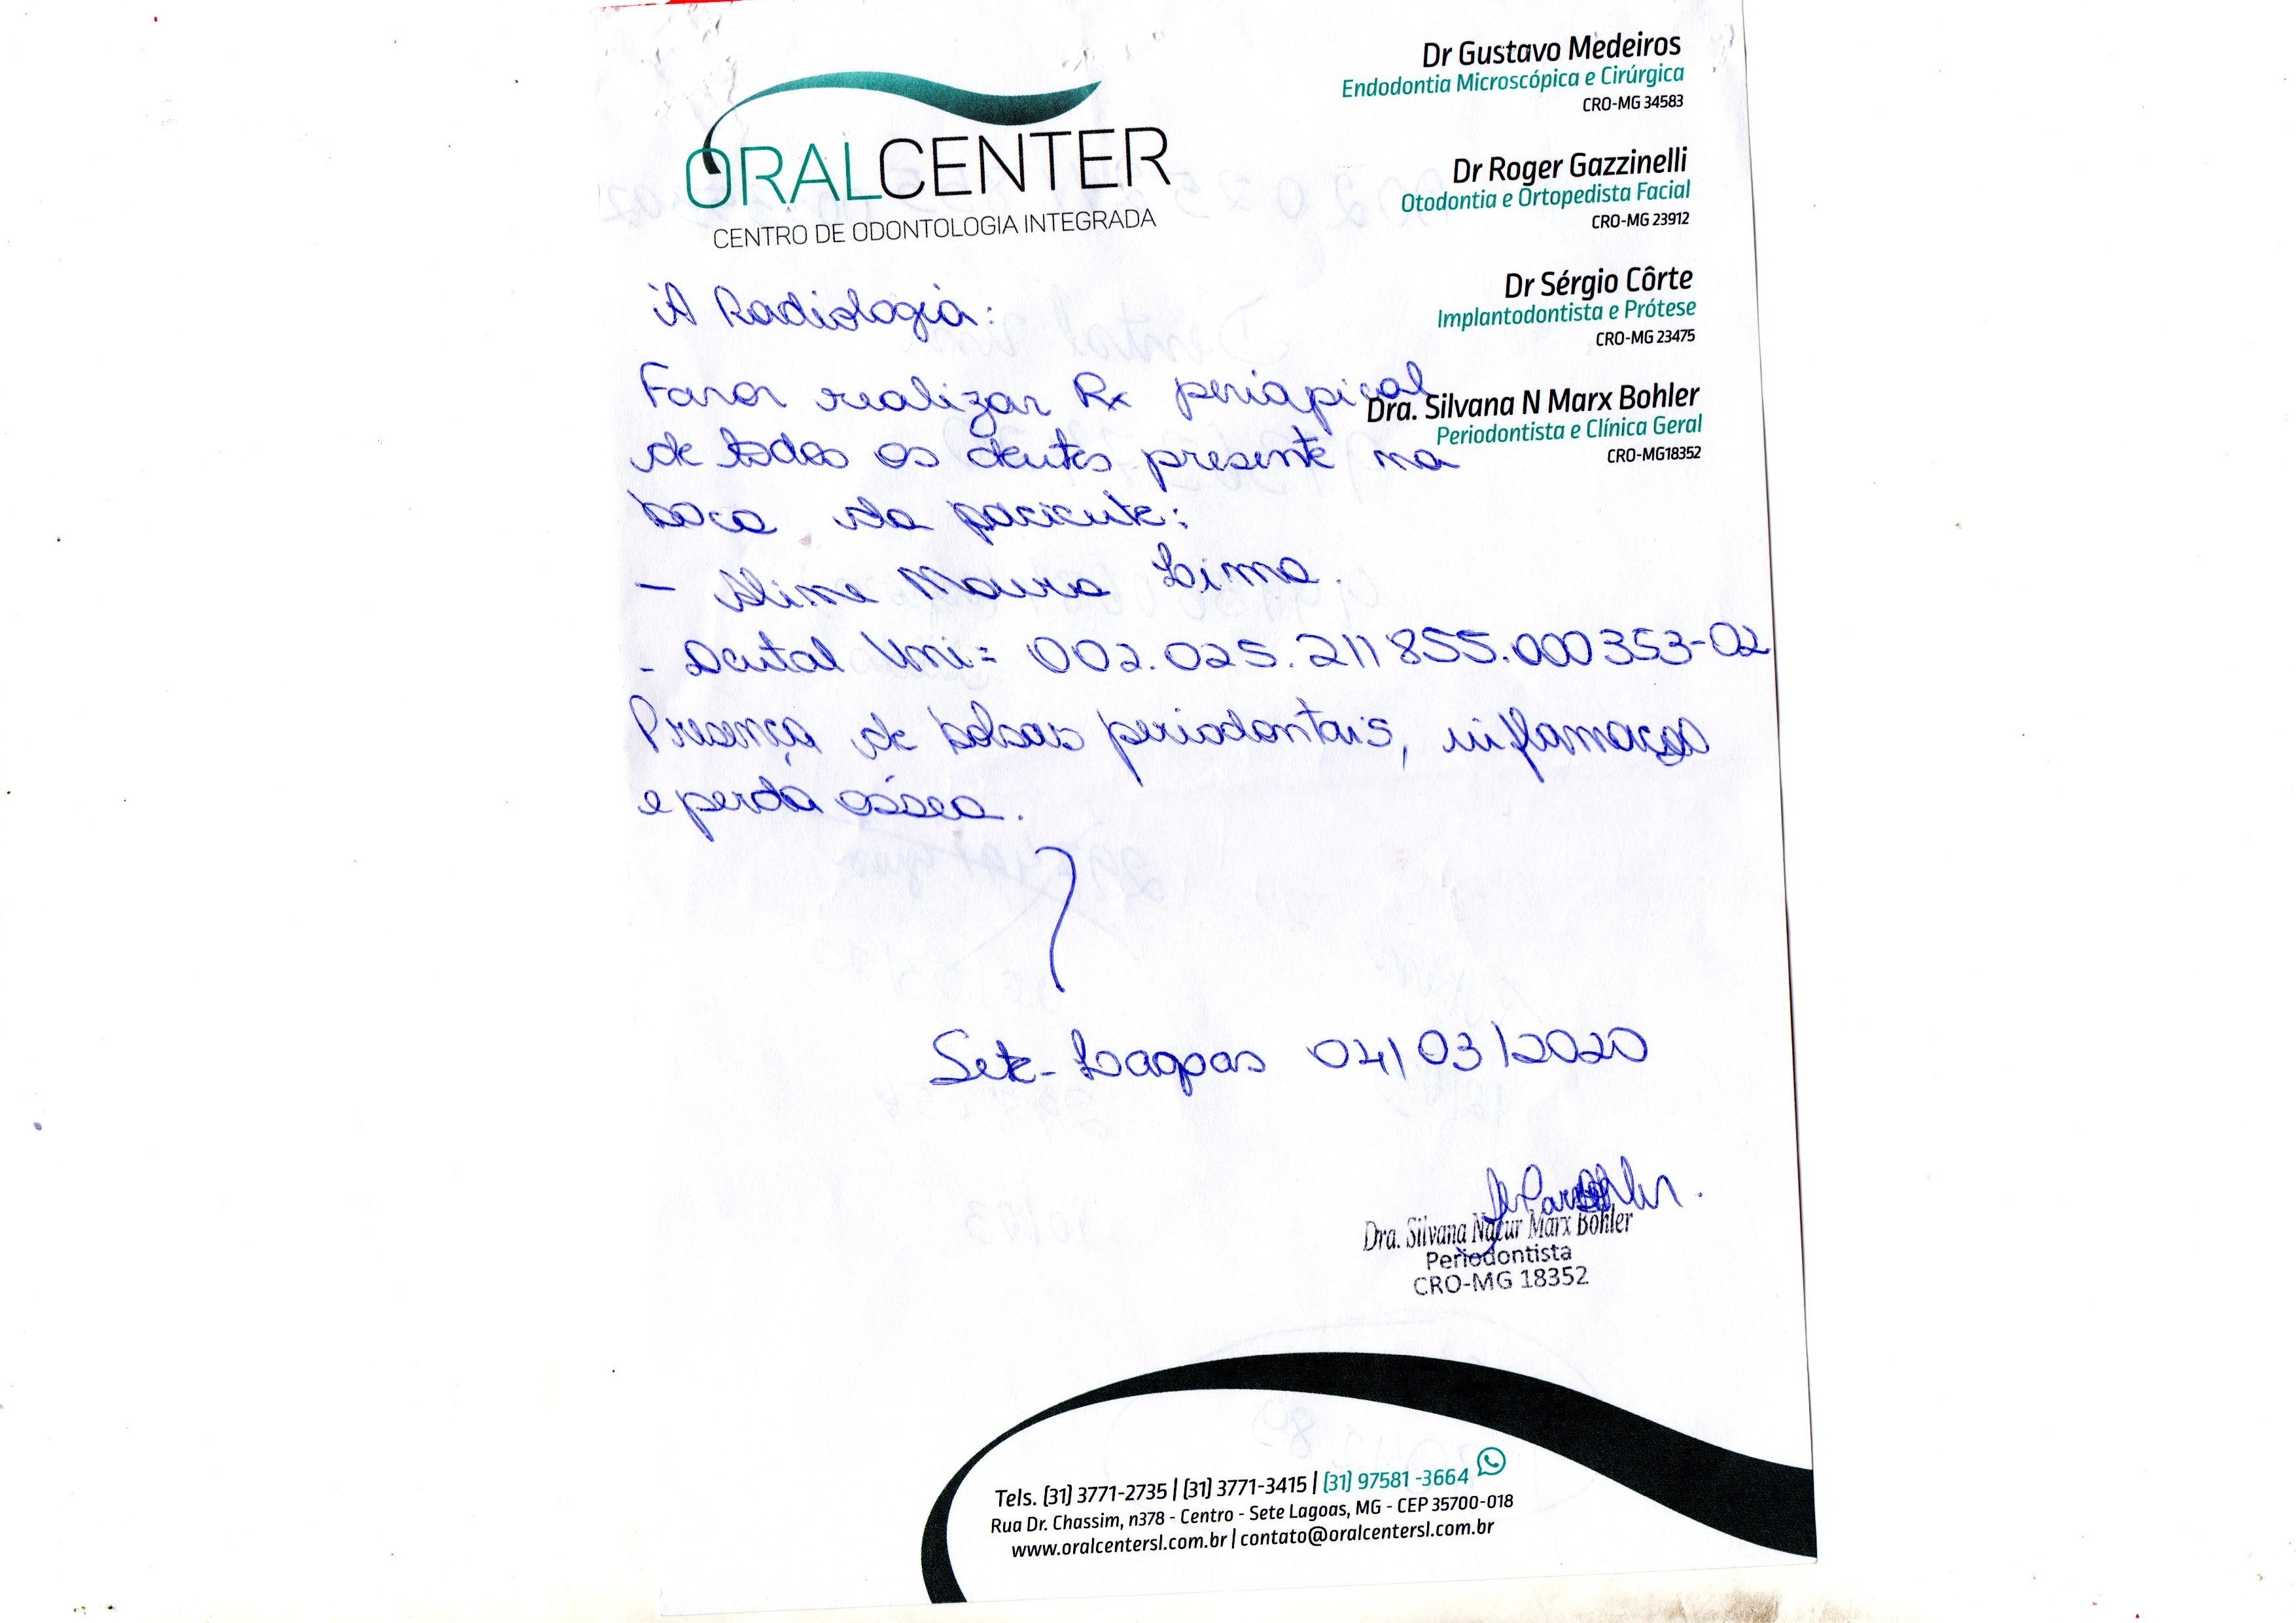 ORALCENTER
CENTRO DE ODONTOLOGIA INTEGRADA
Dr Gustavo Medeiros
Endodontia Microscópica e Cirúrgica
CRO-MG 34583
Dr Roger Gazzinelli
Otodontia e Ortopedista Facial
CRO-MG 23912
Dr Sérgio Côrte
Implantodontista e Prótese
CRO-MG 23475
Dra. Silvana N Marx Bohler
Periodontista e Clínica Geral
CRO-MG18352
À Radiologia:
Favor realizar Rx periapical
de todos os dentes presente na
boca da paciente:
- Aline Moura Lima.
- Dental Uni = 002.025.211855.000353-02
Presença de bolsas periodontais, inflamação
e perda óssea.
Sete-Lagoas 04/03/2020
Dra. Silvana Nacur Marx Bohler
Periodontista
CRO-MG 18352
Tels. (31) 3771-2735 | (31) 3771-3415 | (31) 97581-3664
Rua Dr. Chassim, n378 - Centro - Sete Lagoas, MG - CEP 35700-018
www.oralcentersl.com.br | contato@oralcentersl.com.br